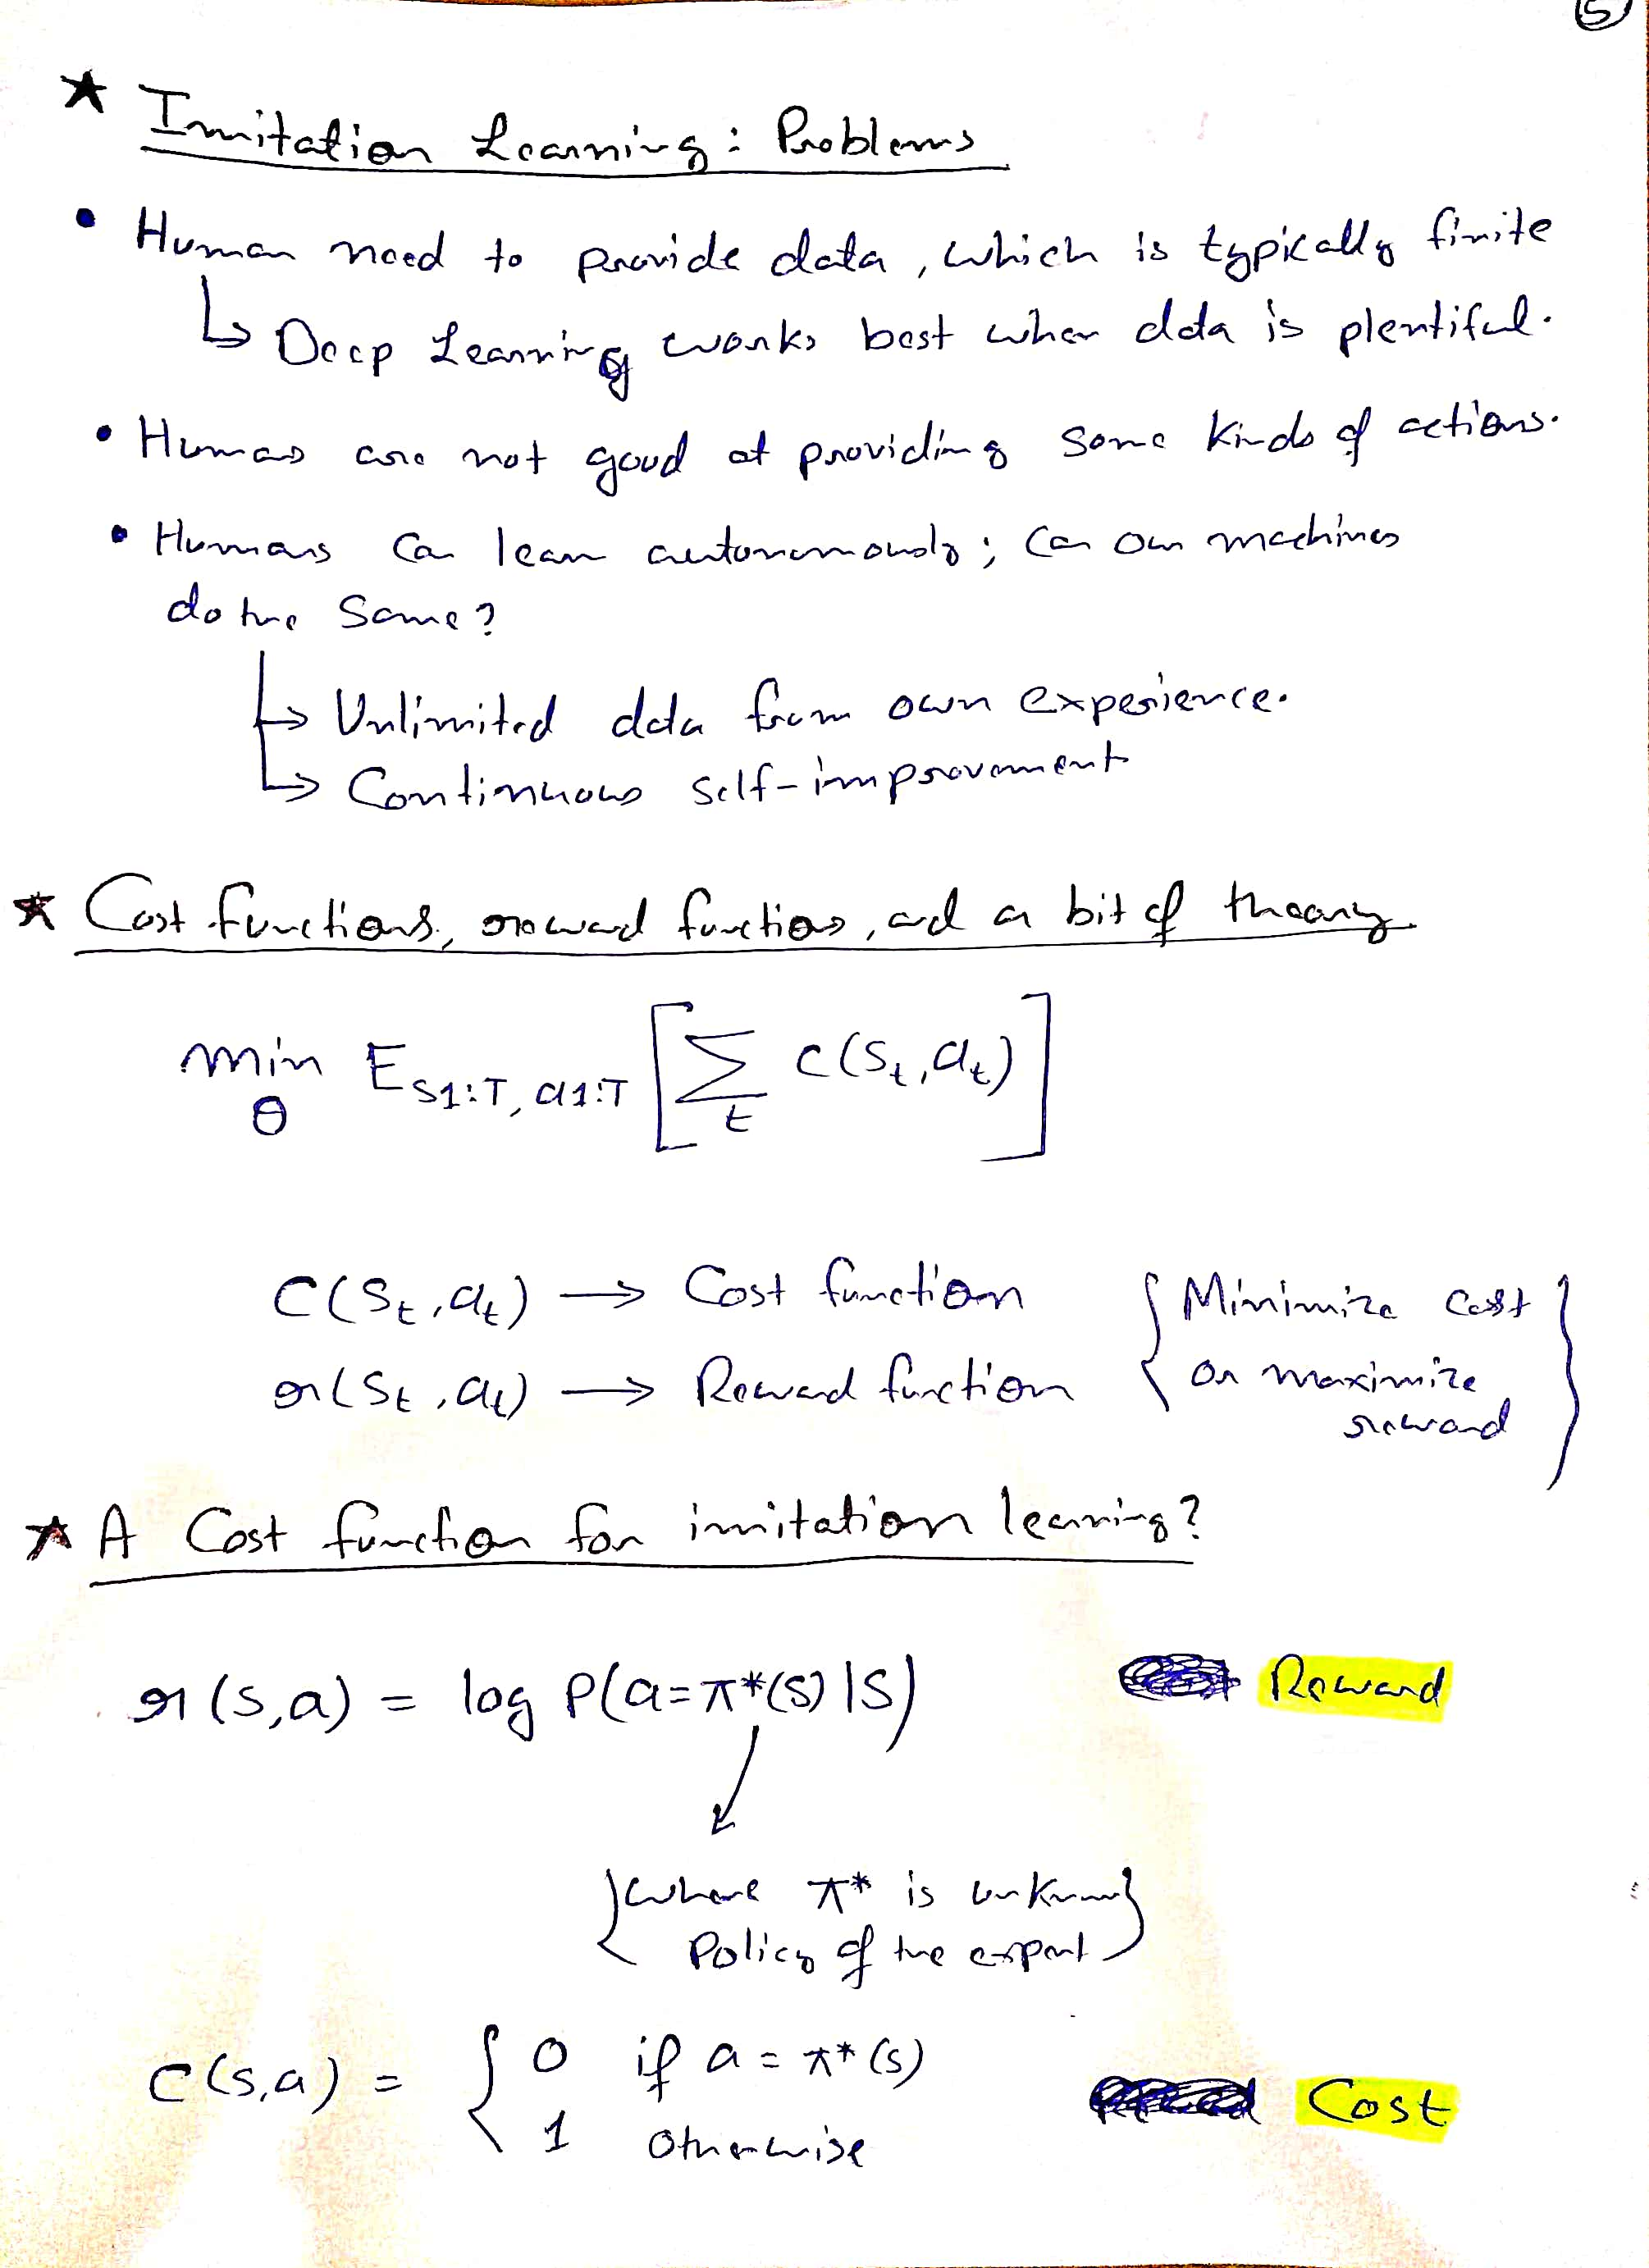 5
★ Imitation Learning: Problems
• Human need to provide data, which is typically finite
↳ Deep Learning works best when data is plentiful.
• Humans are not good at providing some kinds of actions.
• Humans can learn autonomously; can our machines
do the same?
↳ Unlimited data from own experience.
↳ Continuous self-improvement
★ Cost functions, reward functions, and a bit of theory
min E S1:T, a1:T [ Σ c(St, at) ]
θ t
C(St, at) → Cost function { Minimize cost
r(St, at) → Reward function or maximize
reward }
★ A Cost function for imitation learning?
r(s,a) = log P(a=π*(s)|s) Reward
{ where π* is unknown
Policy of the expert }
C(s,a) = { 0 if a = π*(s) Cost
1 otherwise